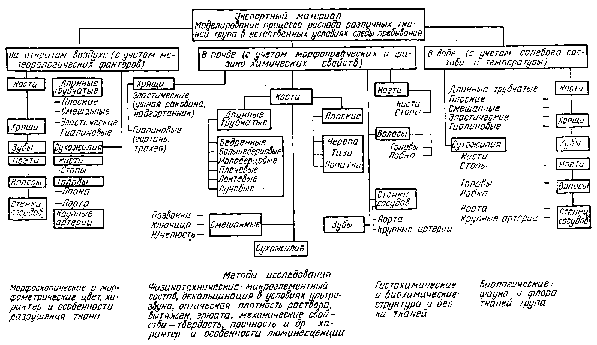 Экспертный материал
Моделирование процесса распада различных тканей трупа в естественных условиях среды пребывания
На открытом воздухе (с учетом метеорологических факторов)
В почве (с учетом морфологических и физико-химических свойств)
В воде (с учетом солевого состава и температуры)
Кости
Длинные
трубчатые
Плоские
Смешанные
Хрящи
Эластические
Гиалиновые
Зубы
Сухожилия
Ногти
Кисти
Стопы
Волосы
Головы
Лобка
Стенки
сосудов
Аорта
Крупные
артерии
Хрящи
Эластические
(ушная раковина,
надгортанник)
Гиалиновые
(гортань,
трахея)
Кости
Длинные
трубчатые
Бедренные
Большеберцовые
Малоберцовые
Плечевые
Локтевые
Лучевые
Плоские
Черепа
Таза
Лопатки
Позвонки
Ключицы
Челюсть
Смешанные
Сухожилия
Ногти
Кисти
Стопы
Волосы
Головы
Лобка
Стенки
сосудов
Аорта
Крупные артерии
Зубы
Длинные трубчатые
Плоские
Смешанные
Эластические
Гиалиновые
Сухожилия
Кисти
Стопы
Головы
Лобка
Аорта
Крупные артерии
Кости
Хрящи
Зубы
Ногти
Волосы
Стенки
сосудов
Методы исследования
Морфоскопические и морфометрические цвет, характер и особенности разрушения ткани
Физикотехнические-микроэлементный
состав, декальцинация в условиях ультразвука, оптическая плотность раствора,
вытяжек,
механические свойства — твердость, прочность и др. характер и особенности люминесценции
Гистохимические
и биохимические-
структура и
тканей
Биологические-
фауна и флора
тканей трупа